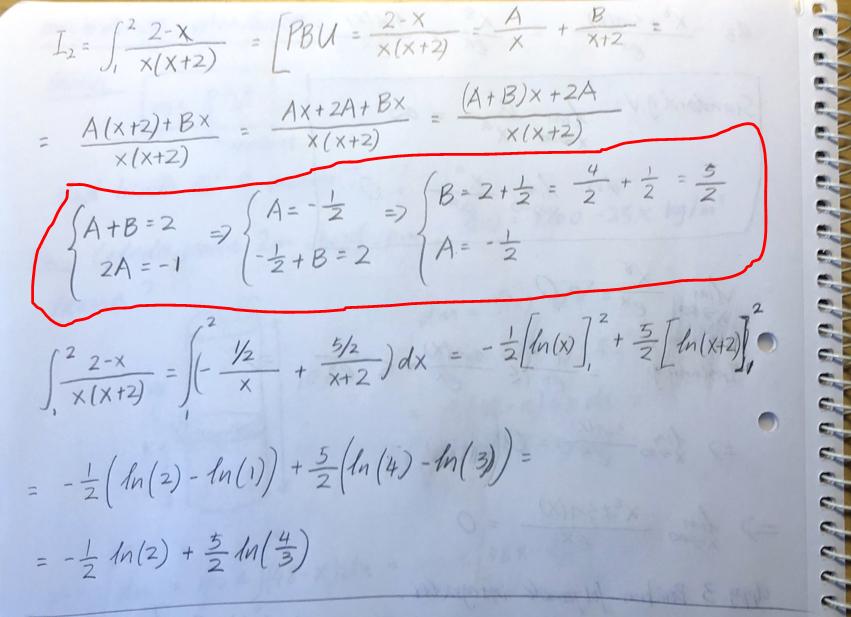 I₂ = ∫₁² (2-x)/(x(x+2)) = [PBU = (2-x)/(x(x+2)) = A/x + B/(x+2) =
= (A(x+2)+Bx)/(x(x+2)) = (Ax+2A+Bx)/(x(x+2)) = ((A+B)x+2A)/(x(x+2))
{A+B=2, 2A=-1 => {A=-1/2, -1/2+B=2 => {B=2+1/2 = 4/2+1/2 = 5/2, A=-1/2
∫₁² (2-x)/(x(x+2)) = ∫₁² (- (1/2)/x + (5/2)/(x+2)) dx = -1/2 [ln(x)]₁² + 5/2 [ln(x+2)]₁²
= -1/2 (ln(2) - ln(1)) + 5/2 (ln(4) - ln(3)) =
= -1/2 ln(2) + 5/2 ln(4/3)